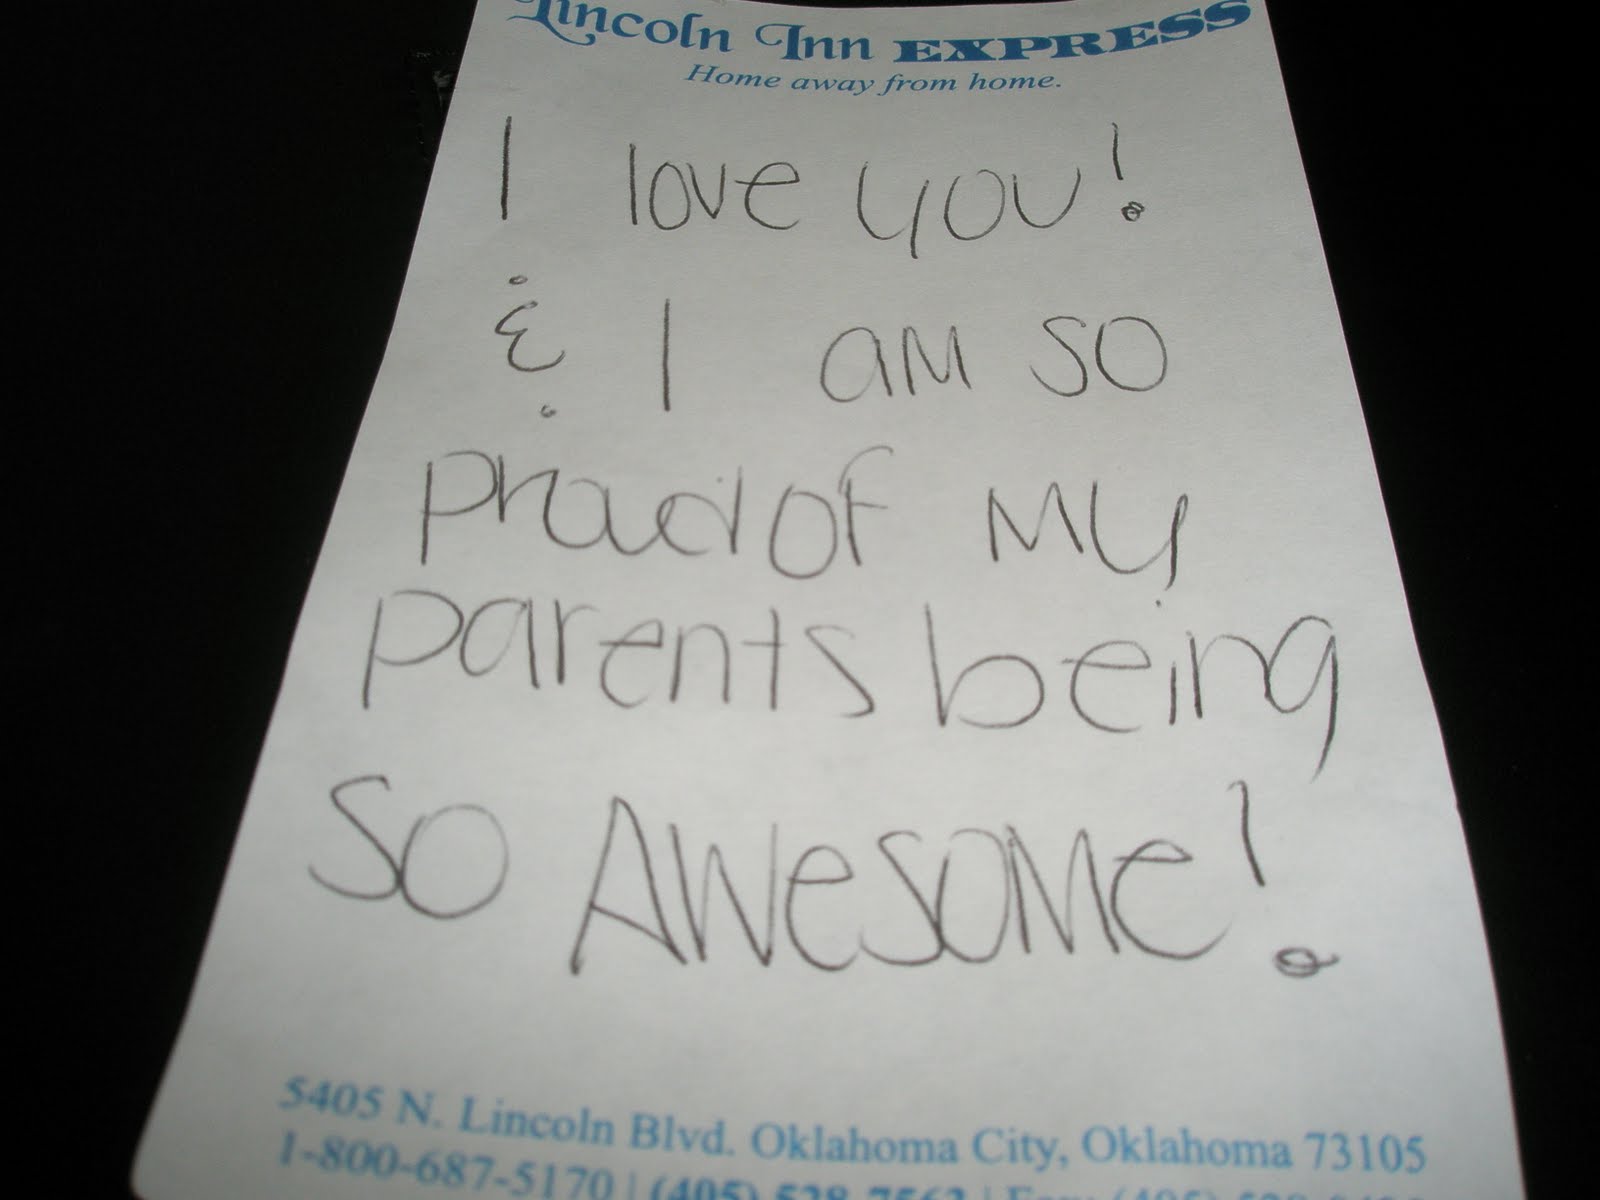 Lincoln Inn EXPRESS
Home away from home.
I love you!
& I am so
proud of my
parents being
so Awesome!
5405 N. Lincoln Blvd. Oklahoma City, Oklahoma 73105
1-800-687-5170 | (405) 528-7563 | Fax: (405)